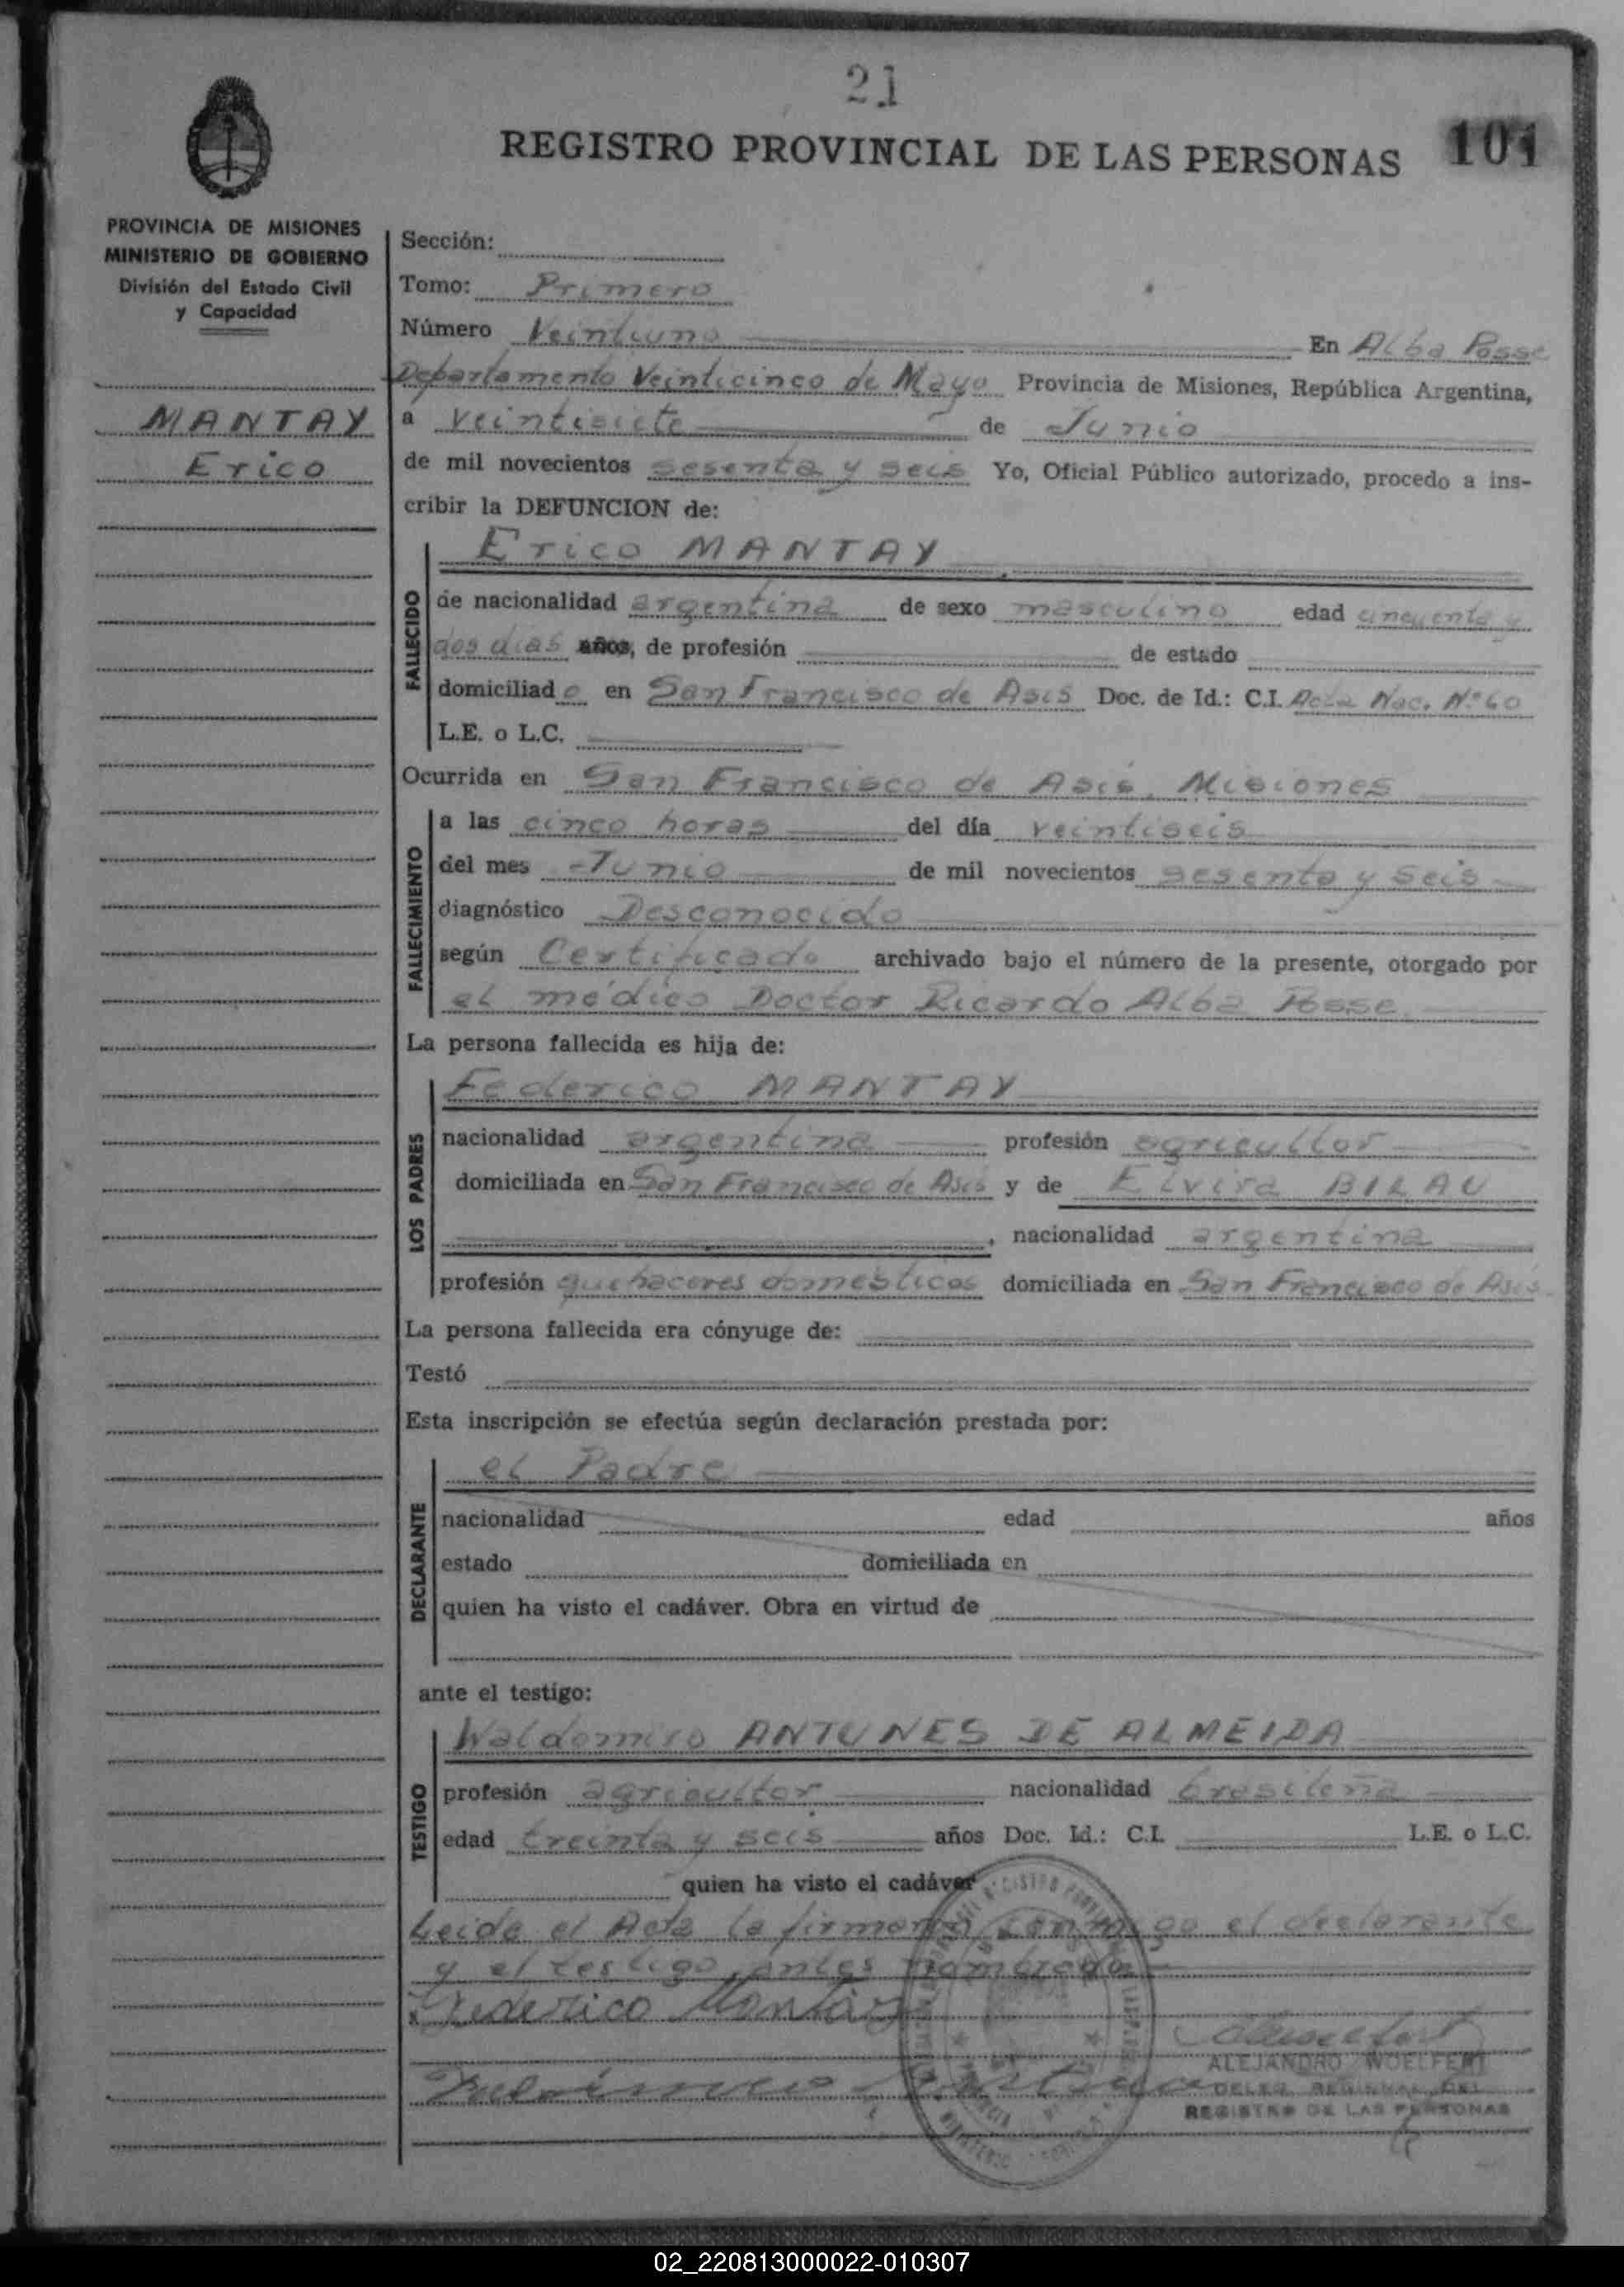 21
REGISTRO PROVINCIAL DE LAS PERSONAS 101
PROVINCIA DE MISIONES
MINISTERIO DE GOBIERNO
División del Estado Civil
y Capacidad
MANTAY
Erico
Sección:
Tomo: Primero
Número Veintiuno En Alba Posse
Departamento Veinticinco de Mayo Provincia de Misiones, República Argentina,
a veintisiete de Junio
de mil novecientos sesenta y seis Yo, Oficial Público autorizado, procedo a ins-
cribir la DEFUNCION de:
FALLECIDO
Erico MANTAY
de nacionalidad argentina de sexo masculino edad cincuenta y
dos días años, de profesión de estado
domiciliado en San Francisco de Asís Doc. de Id.: C.I. Acta Nac. Nº 60
L.E. o L.C.
Ocurrida en San Francisco de Asís, Misiones
FALLECIMIENTO
a las cinco horas del día veintiseis
del mes Junio de mil novecientos sesenta y seis
diagnóstico Desconocido
según Certificado archivado bajo el número de la presente, otorgado por
el médico Doctor Ricardo Alba Posse
La persona fallecida es hija de:
LOS PADRES
Federico MANTAY
nacionalidad argentina profesión agricultor
domiciliada en San Francisco de Asís y de Elvira BILAU
, nacionalidad argentina
profesión quehaceres domésticos domiciliada en San Francisco de Asís
La persona fallecida era cónyuge de:
Testó
Esta inscripción se efectúa según declaración prestada por:
DECLARANTE
el Padre
nacionalidad edad años
estado domiciliada en
quien ha visto el cadáver. Obra en virtud de
ante el testigo:
TESTIGO
Waldomiro ANTUNES DE ALMEIDA
profesión agricultor nacionalidad brasileña
edad treinta y seis años Doc. Id.: C.I. L.E. o L.C.
quien ha visto el cadáver
Leida el Acta la firman conmigo el declarante
y el testigo antes nombrado
Federico Mantay
ALEJANDRO WOELFERT
REGISTRO DE LAS PERSONAS
02_220813000022-010307